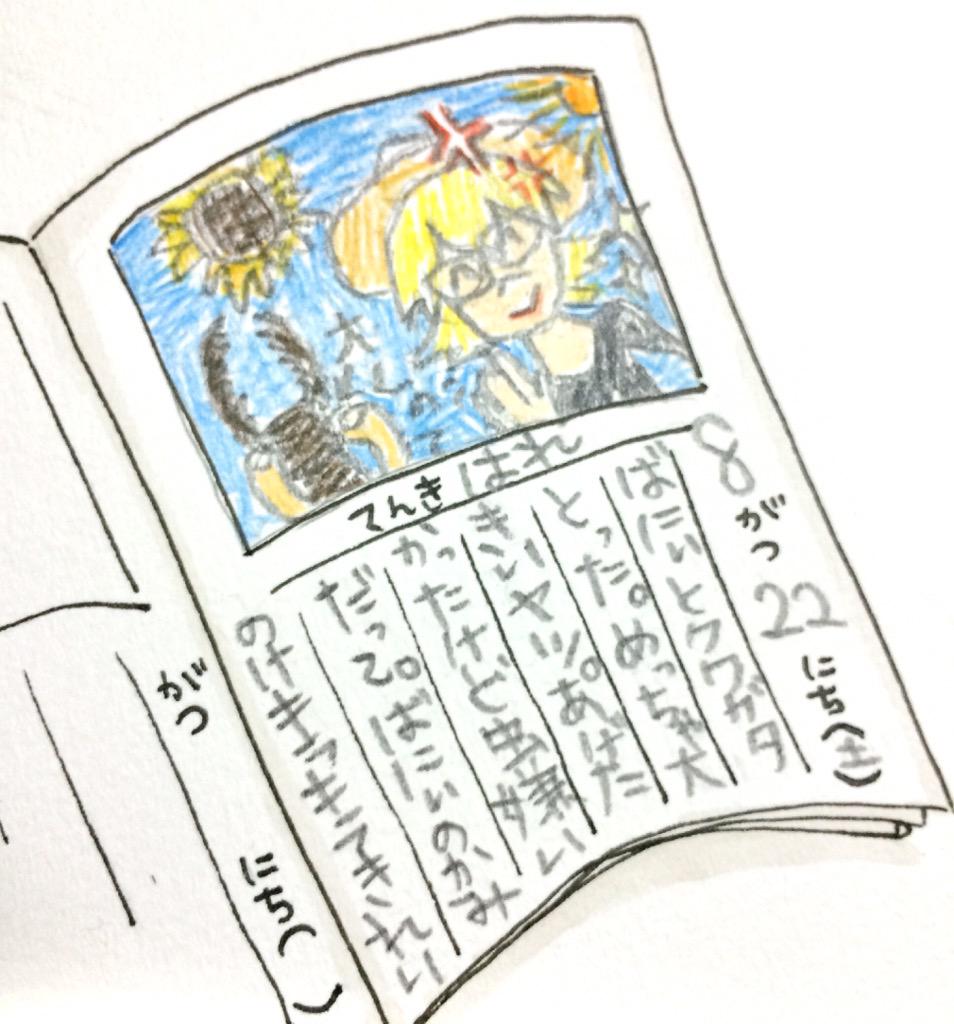 8がつ22にち(土)
てんき はれ
ばにぃとクワガタ
とった。めっちゃ大
きいヤツ。あげた
かったけど虫嫌い
だって。ばにぃのかみ
のけキラッキラできれい
がつ にち( )